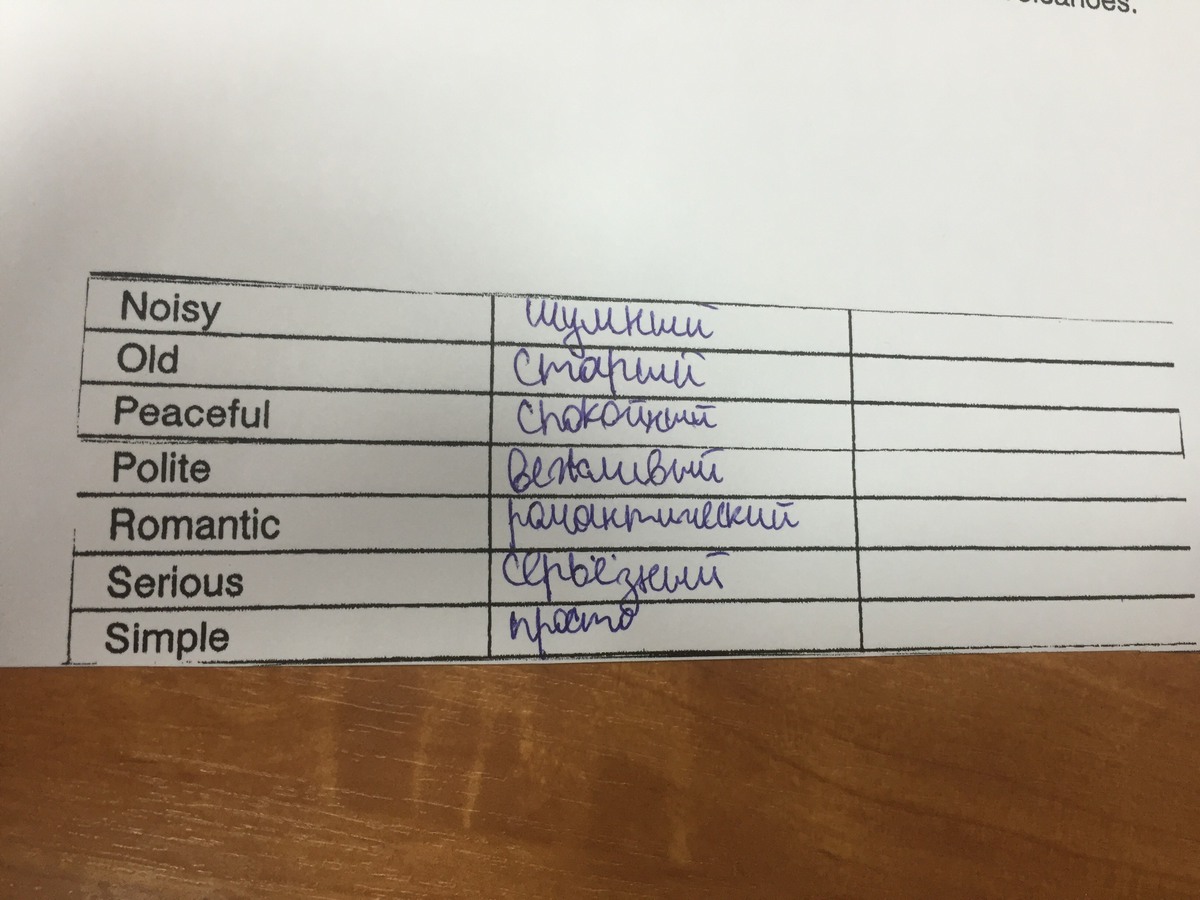 Noisy шумный
Old старый
Peaceful спокойный
Polite вежливый
Romantic романтический
Serious серьёзный
Simple просто